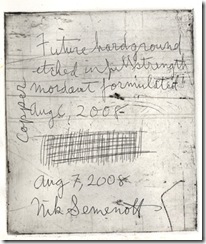 Future hardground
etched in fullstrength
mordant formulated
Aug 6, 2008
Copper
Aug 7, 2008
Nik Semenoff